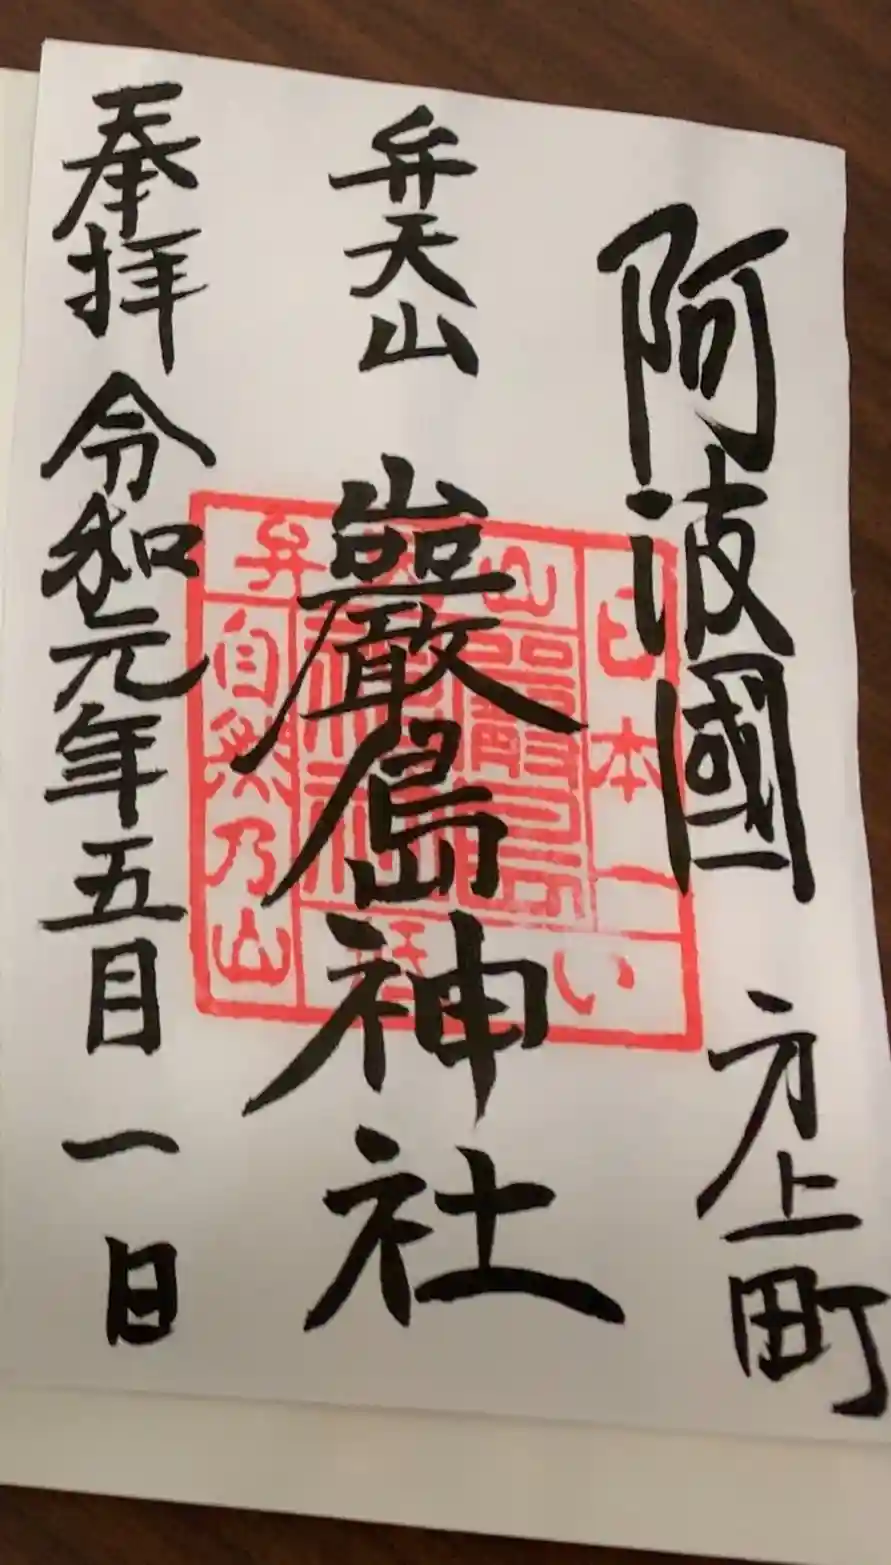 阿波國 方上町
弁天山 巖島神社
奉拝 令和元年五月一日
弁天山
日本一
巖島
神社
自然乃山
い